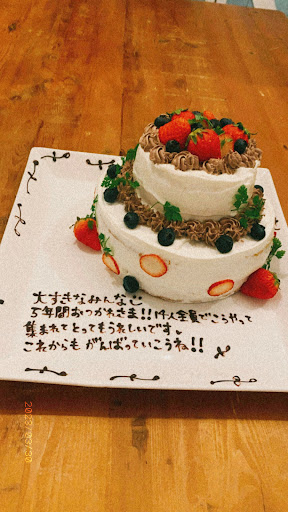 大すきなみんなへ
5年間おつかれさま!!14人全員でこうやって
集まれてとってもうれしいです
これからもがんばっていこうね!!
2023/03/20